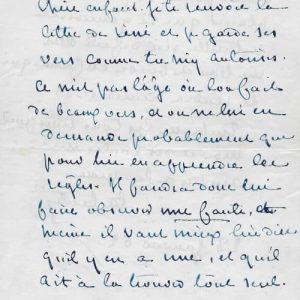 chère enfant. Je te renvoie la
lettre de René et je garde ses
vers comme tu m'y autorises.
Ce n'est pas l'âge où l'on fait
de beaux vers, et on ne lui en
demande probablement que
pour lui en apprendre les
règles. Il faudra donc lui
faire observer une faute,
même il vaut mieux lui dire
qu'il y en a une, et qu'il
ait à la trouver tout seul.